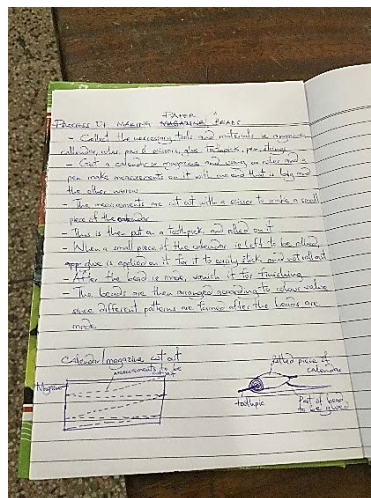 PAPER
PROCESS OF MAKING MAGAZINE BEADS
- Collect the necessary tools and materials ie magazine,
calendar, ruler, pair of scissors, glue, toothpick, pen, strings
- Get a calendar or magazine and using a ruler and a
pen make measurements on it with one end that is long and
the other narrow
- The measurements are cut out with a scissor to make a small
piece of the calendar
- This is then put on a toothpick, and rolled on it
- When a small piece of the calendar is left to be rolled,
glue is applied on it for it to easily stick and not roll out
- After the bead is made, varnish it for finishing
- The beads are then arranged according to colour value
since different patterns are formed after the beads are
made.
Calendar/magazine cut out
measurements to be
Magazine
rolled piece of
calendar
toothpic
Part of bead
to be glued